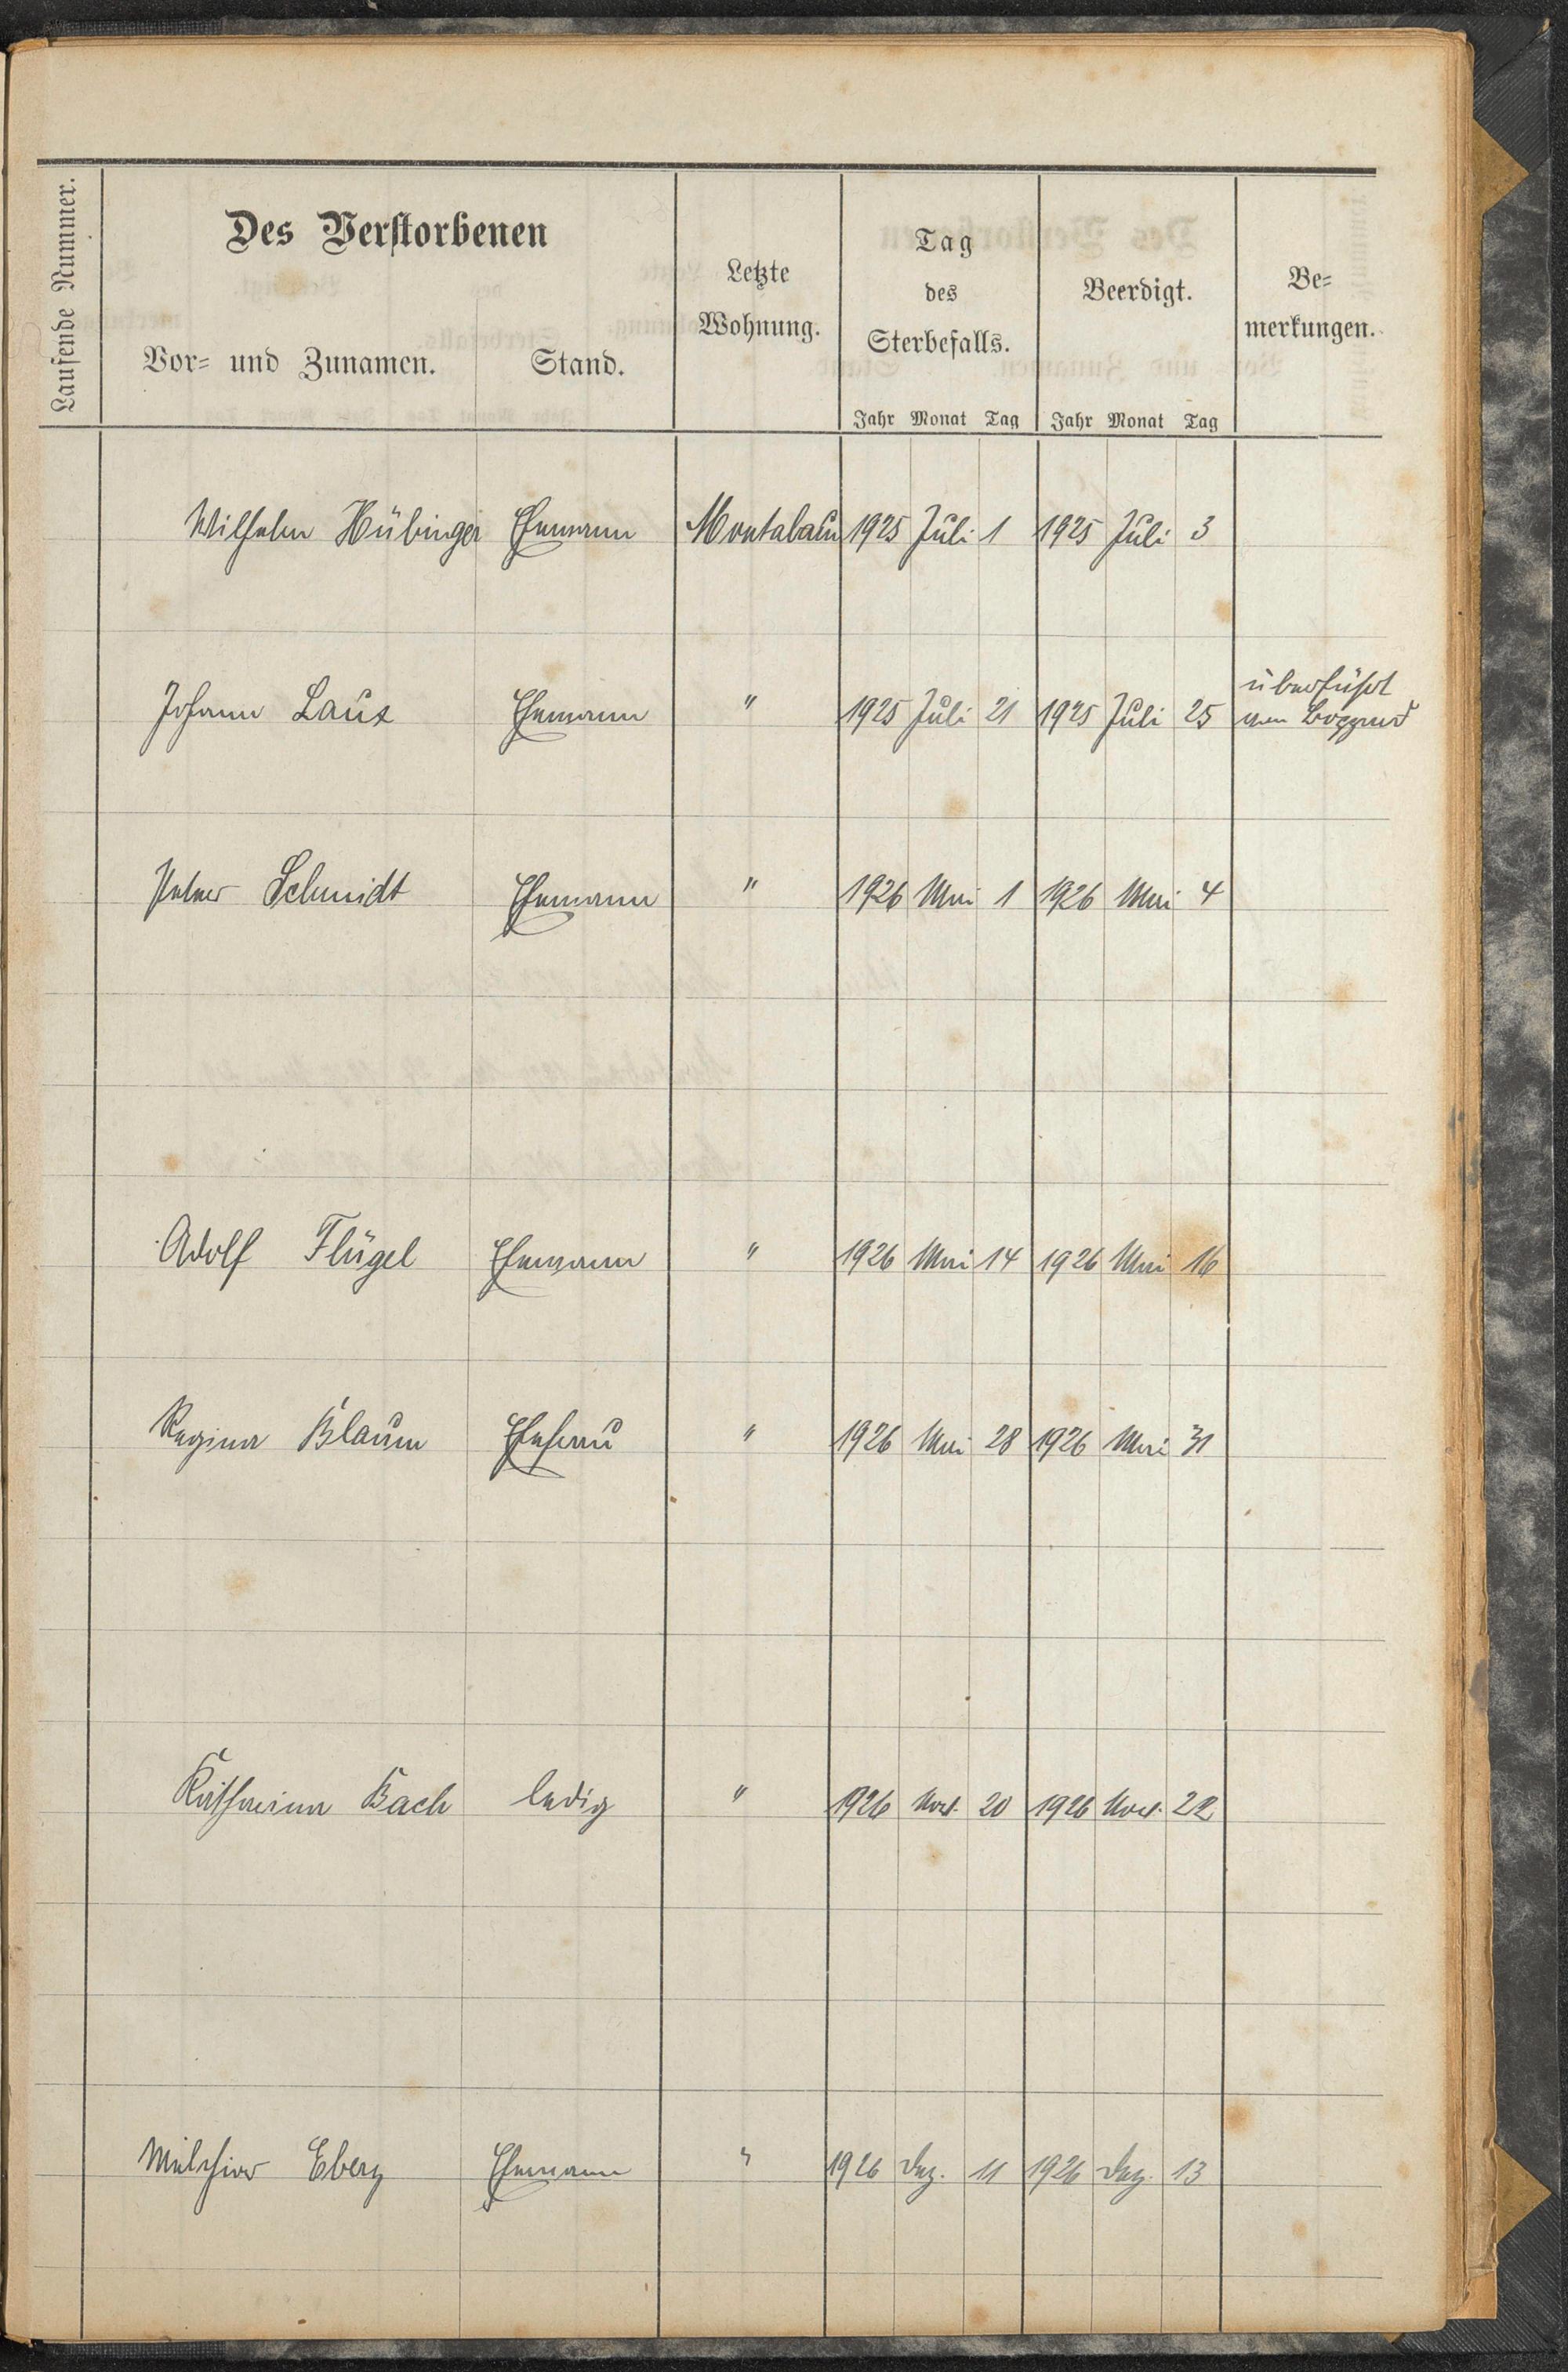 Laufende Nummer.
Des Verstorbenen
Vor- und Zunamen.
Stand.
Letzte
Wohnung.
Tag
des
Sterbefalls.
Jahr Monat Tag
Beerdigt.
Jahr Monat Tag
Be-
merkungen.
Wilhelm Hübinger Ehemann Montabaur 1925 Juli 1 1925 Juli 3
überführt
Johann Laux Ehemann " 1925 Juli 21 1925 Juli 25 Boppard
Peter Schmidt Ehemann " 1926 Mai 1 1926 Mai 4
Adolf Flügel Ehemann " 1926 Mai 14 1926 Mai 16
Regina Blaum Ehefrau " 1926 Mai 28 1926 Mai 31
Katharina Bach ledig " 1926 Nov. 20 1926 Nov. 22
Melchior Eberz Ehemann " 1926 Dez. 11 1926 Dez. 13